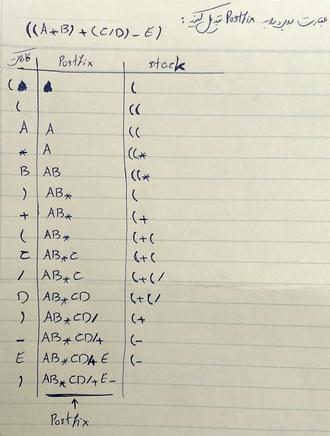 عبارت روبرو را به Postfix تبدیل کنید:
((A*B)+(C/D)-E)
Postfix stack
(
( ((
A A ((
* A ((*
B AB ((*
) AB* (
+ AB* (+
( AB* (+(
C AB*C (+(
/ AB*C (+(/
D AB*CD (+(/
) AB*CD/ (+
- AB*CD/+ (-
E AB*CD/+E (-
) AB*CD/+E-
↑
Postfix